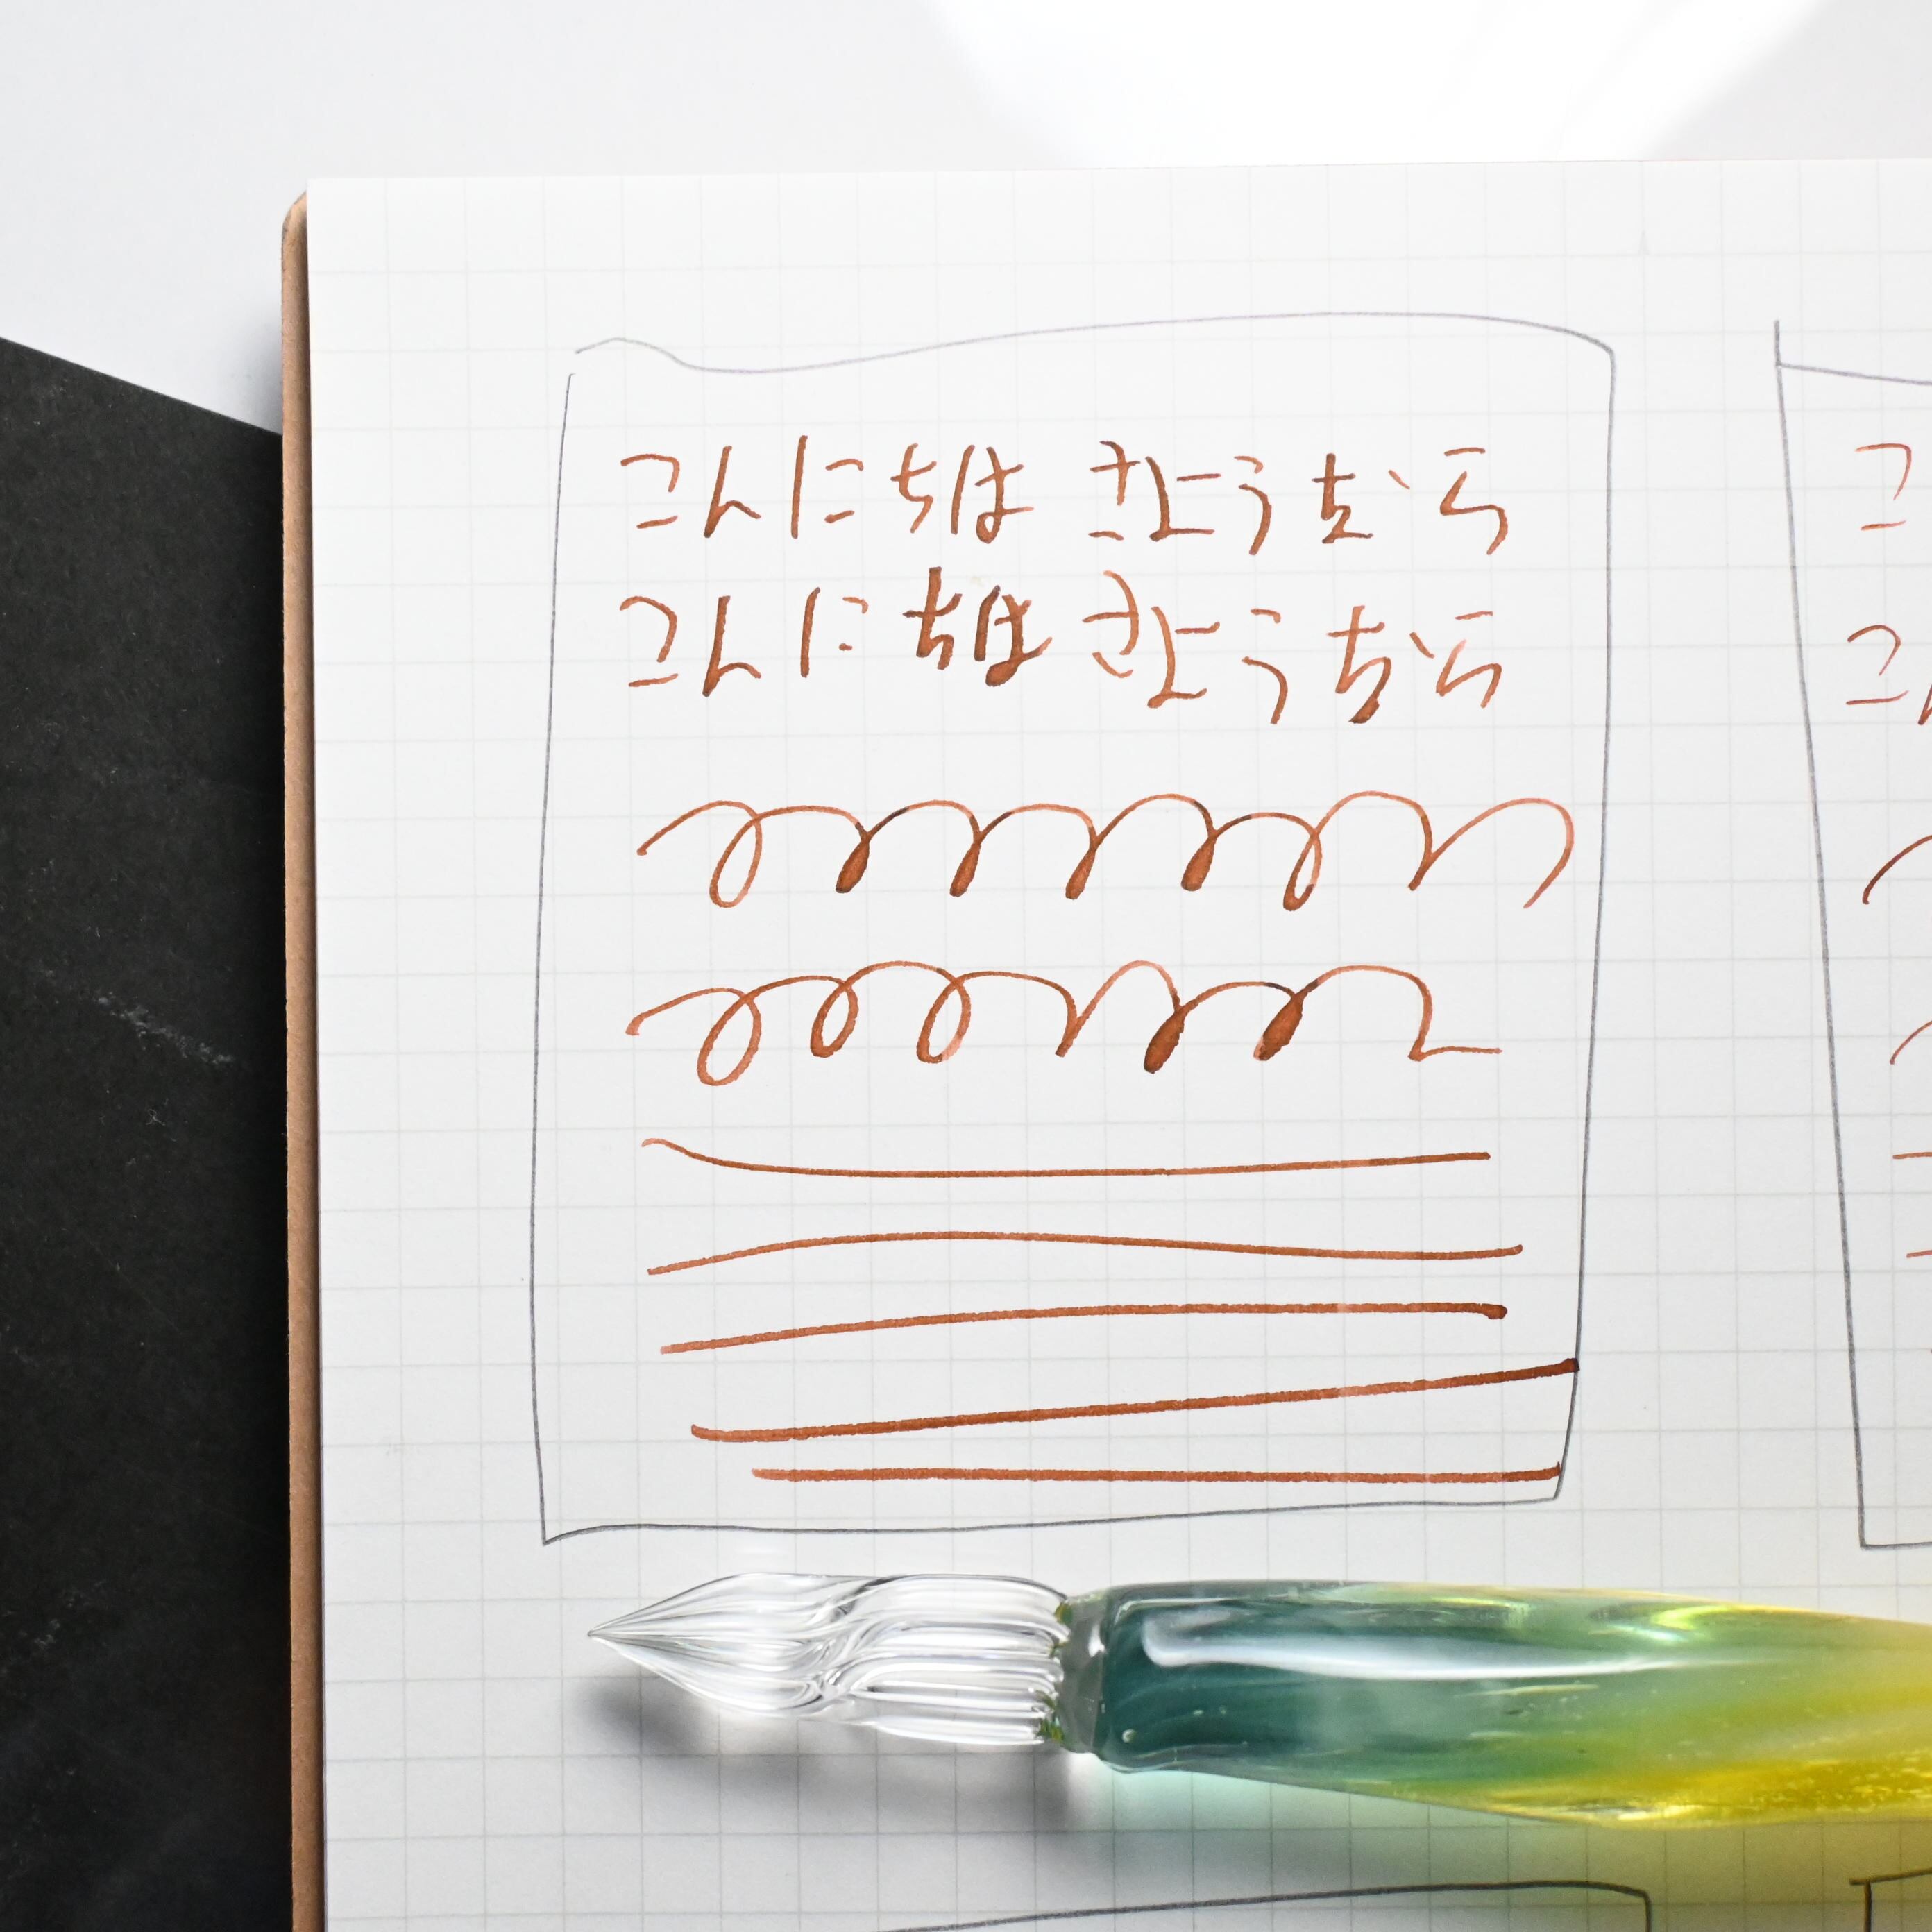 こんにちは さようなら
こんにちは さようなら
こ
こ